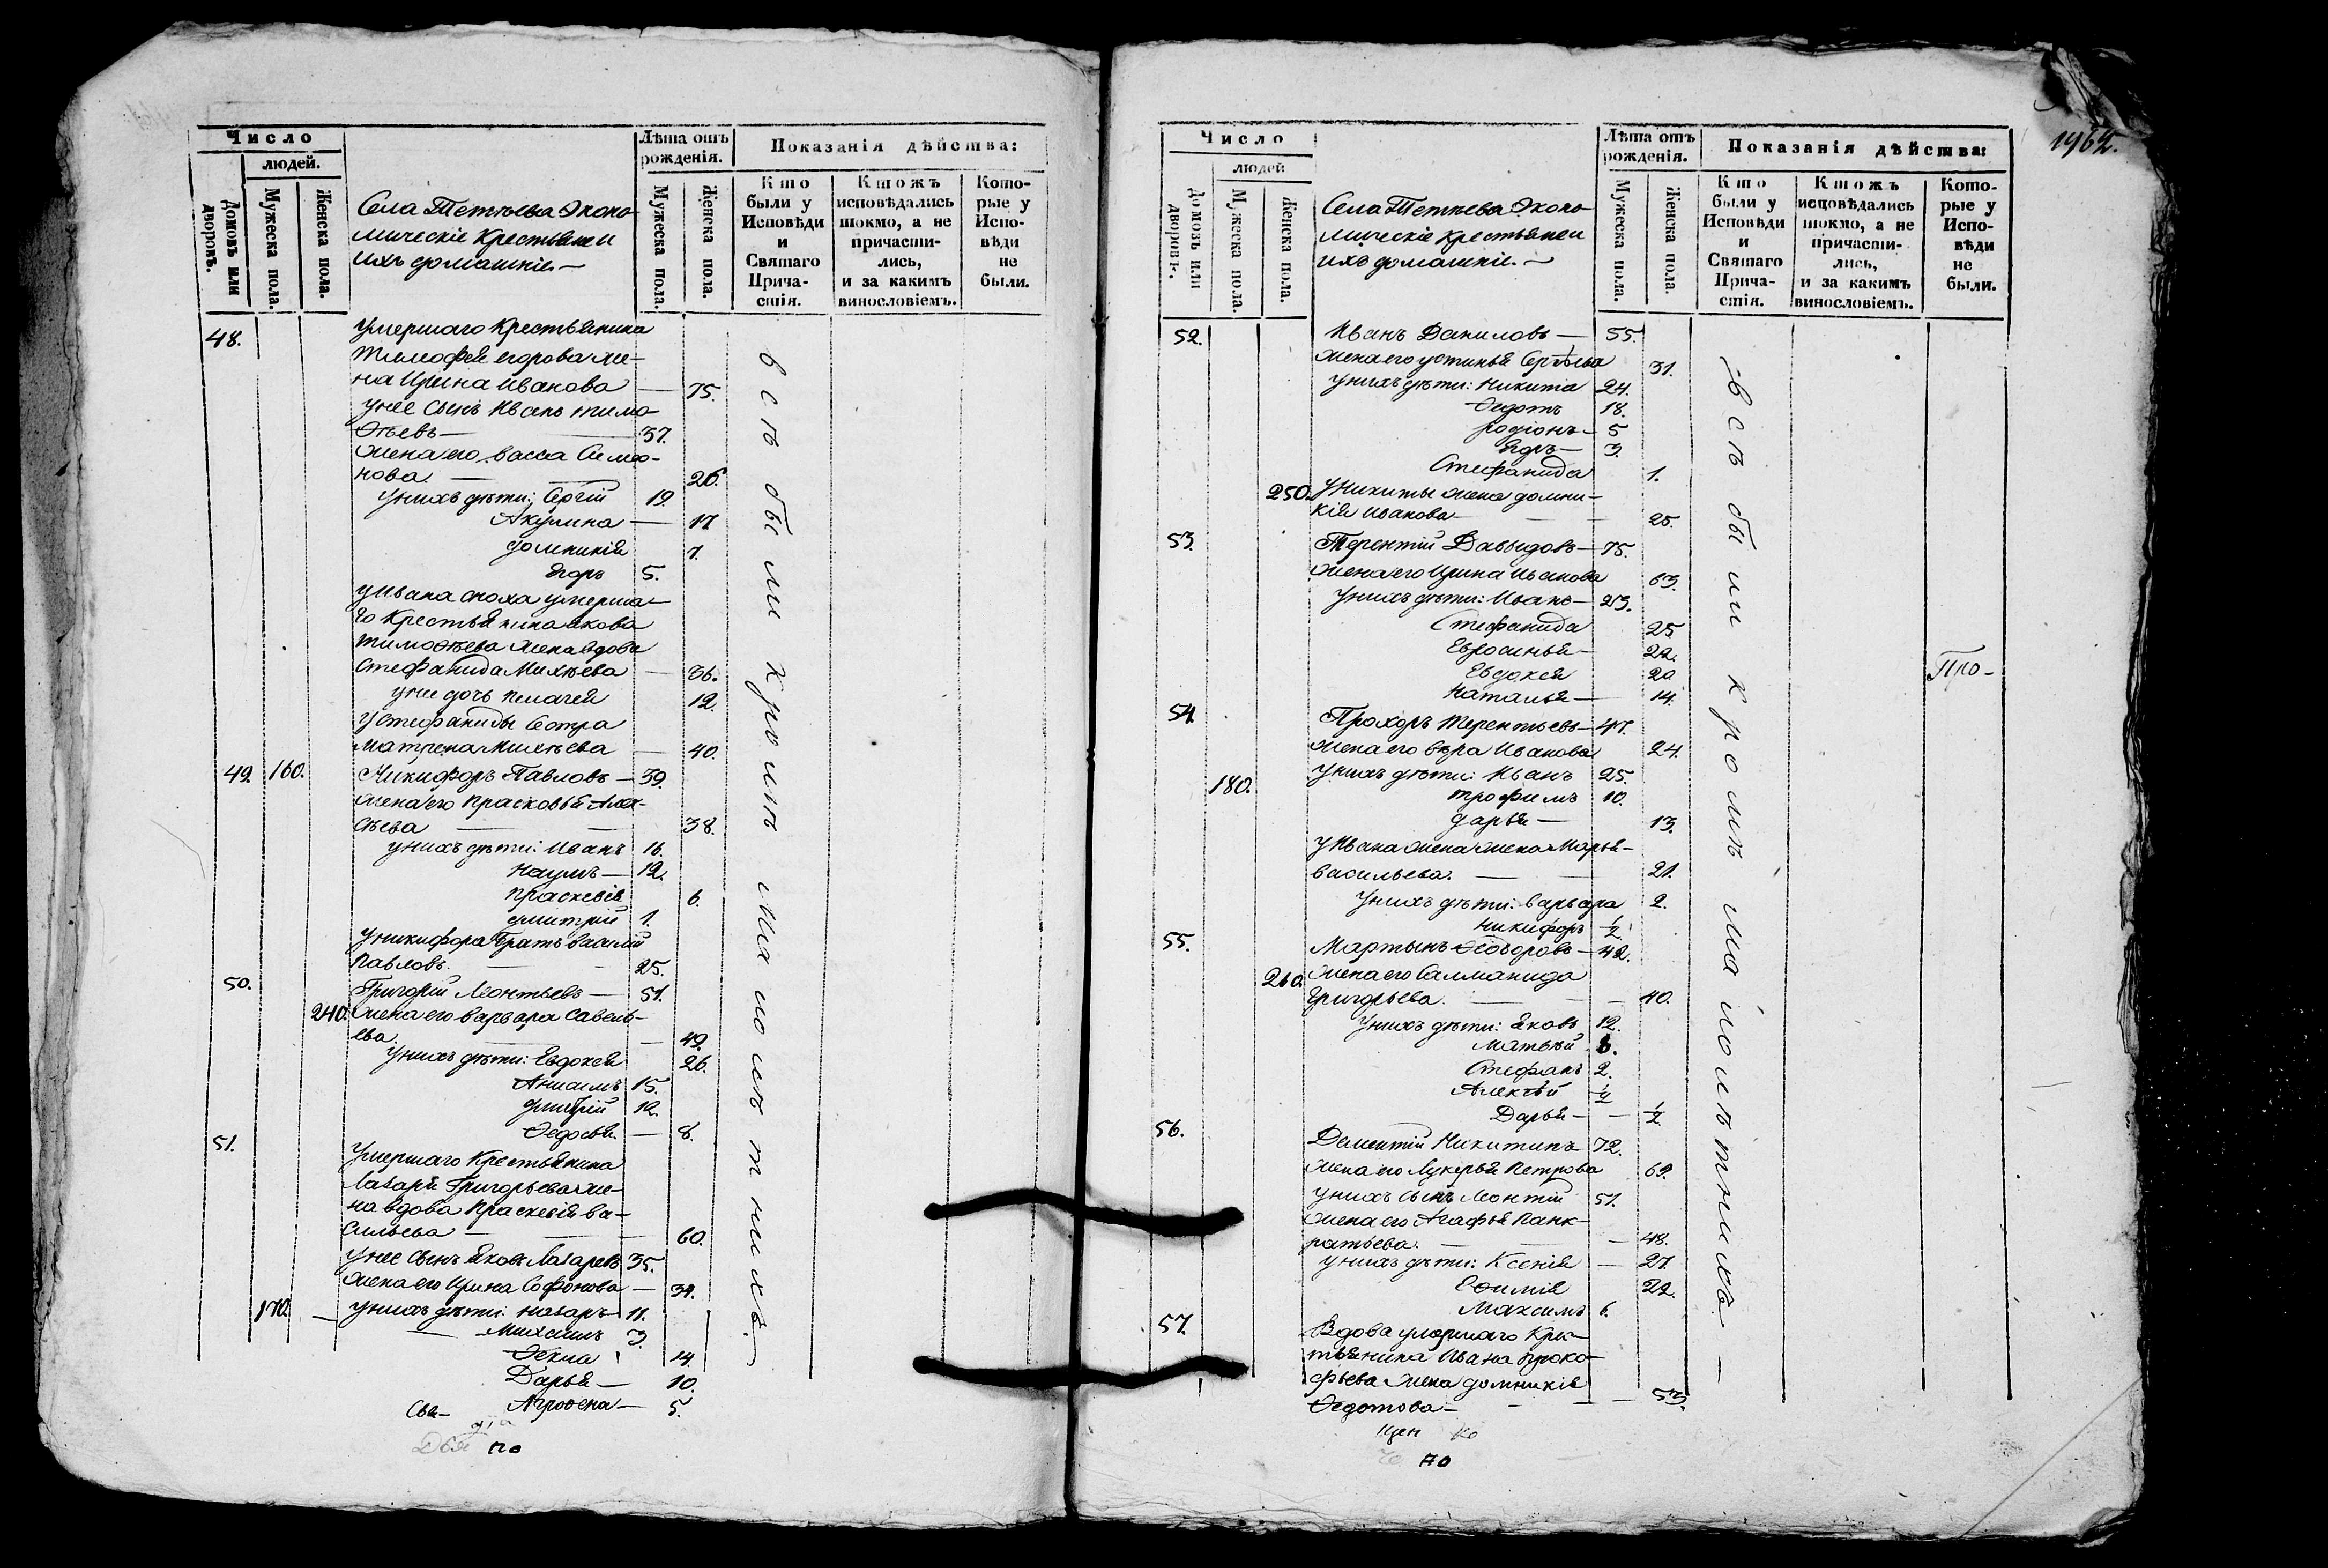 Число
людей.
Домовъ или дворовъ.
Мужеска пола.
Женска пола.
Села Тетѣева Эконо-
мическіе Крестьяне и
ихъ домашніе. —
Лѣта отъ рожденія.
Мужеска пола.
Женска пола.
Показанія дѣйства:
Кто были у Исповѣди и Святаго Прича- стія.
Ктожъ исповѣдались токмо, а не причасти- лись, и за какимъ винословіемъ.
Кото- рые у Испо- вѣди не были.
48. умершаго Крестьянина
тимофея егорова же-
на Ирина Иванова — 75.
у нее сынъ Иванъ тимо-
ѳѣевъ — 37.
Жена его васса Симо-
нова — 26.
у нихъ дѣти: Сергій 19.
Акулина — 17
домникія 7.
Егоръ 5.
у Ивана сноха умерша-
го Крестьянина Якова
тимоѳѣева жена вдова
Стефанида Михѣева — 36.
у нее дочь пелагея 12.
у Стефаниды сестра
матрена Михѣева — 40.
49. 160. Никифоръ Павловъ — 39.
жена его прасковья Алек-
сѣева — 38.
у нихъ дѣти: Иванъ 16.
Наумъ — 12.
праскевія 6.
дмитрій 1.
у никифора братъ василій
Павловъ. — 25.
50. Григорій Леонтьевъ — 51.
240. жена его варвара савель-
ева — 49.
у нихъ дѣти: Евдокея 26.
Анисимъ 15.
дмитрій 12.
Ѳедосья — 8.
51. умершаго Крестьянина
Лазаря Григорьева же-
на вдова праскевія ва-
сильева — 60.
у нее сынъ Яковъ Лазаревъ 35.
жена его Ирина Софонова — 34.
170. у нихъ дѣти: назаръ — 11.
Михаилъ 3.
Ѳекла 14.
Дарья — 10.
Агроѳена — 5.
всѣ были кромѣ малолѣтнихъ. —
Свя-
по
1962.
Число
людей
Домовъ или дворовъ.
Мужеска пола.
Женска пола.
Села Тетѣева Эконо-
мическіе крестьяне и
ихъ домашніе. —
Лѣта отъ рожденія.
Мужеска пола.
Женска пола.
Показанія дѣйства:
Кто были у Исповѣди и Святаго Прича- стія.
Ктожъ исповѣдались токмо, а не причасти- лись, и за какимъ винословіемъ.
Кото- рые у Испо- вѣди не были.
52. Иванъ Даниловъ — 55.
жена его устинья Сергѣева 31.
у нихъ дѣти: Никита 24.
Ѳедотъ 18.
родіонъ — 5
Егоръ — 3.
Стефанида 1.
250. у Никиты жена домни-
кія Иванова — 25.
53. Терентій Давыдовъ — 75.
жена его Ирина Иванова 63.
у нихъ дѣти: Иванъ — 23.
Стефанида 25
Евросинья — 22.
Евдокея 20
Наталья — 14.
54. Прохоръ терентьевъ — 47.
жена его вѣра Иванова 24.
у нихъ дѣти: Иванъ 25.
180. трофимъ 10.
дарья — 13.
у Ивана жена жена Марья —
васильева. — 21.
у нихъ дѣти: варвара 2.
Никифоръ ½
55. Мартынъ Ѳеодоровъ — 42.
260. жена его Салманида
Григорьева. — 40.
у нихъ дѣти: Яковъ 12.
Матвѣй 6.
Стефанъ 2.
Алексѣй ½
Дарья — ½
56. Дементій Никитинъ 72.
жена его Лукерья Петрова 69.
у нихъ сынъ Леонтій 51.
жена его Агафья Панк-
ратьева. — 48.
у нихъ дѣти: Ксенія — 27.
Еѳимія 22.
Максимъ 6.
57. Вдова умершаго Крес-
тьянина Ивана проко-
фьева жена домникія
Ѳедотова — 53.
всѣ были кромѣ малолѣтнихъ —
Про-
по